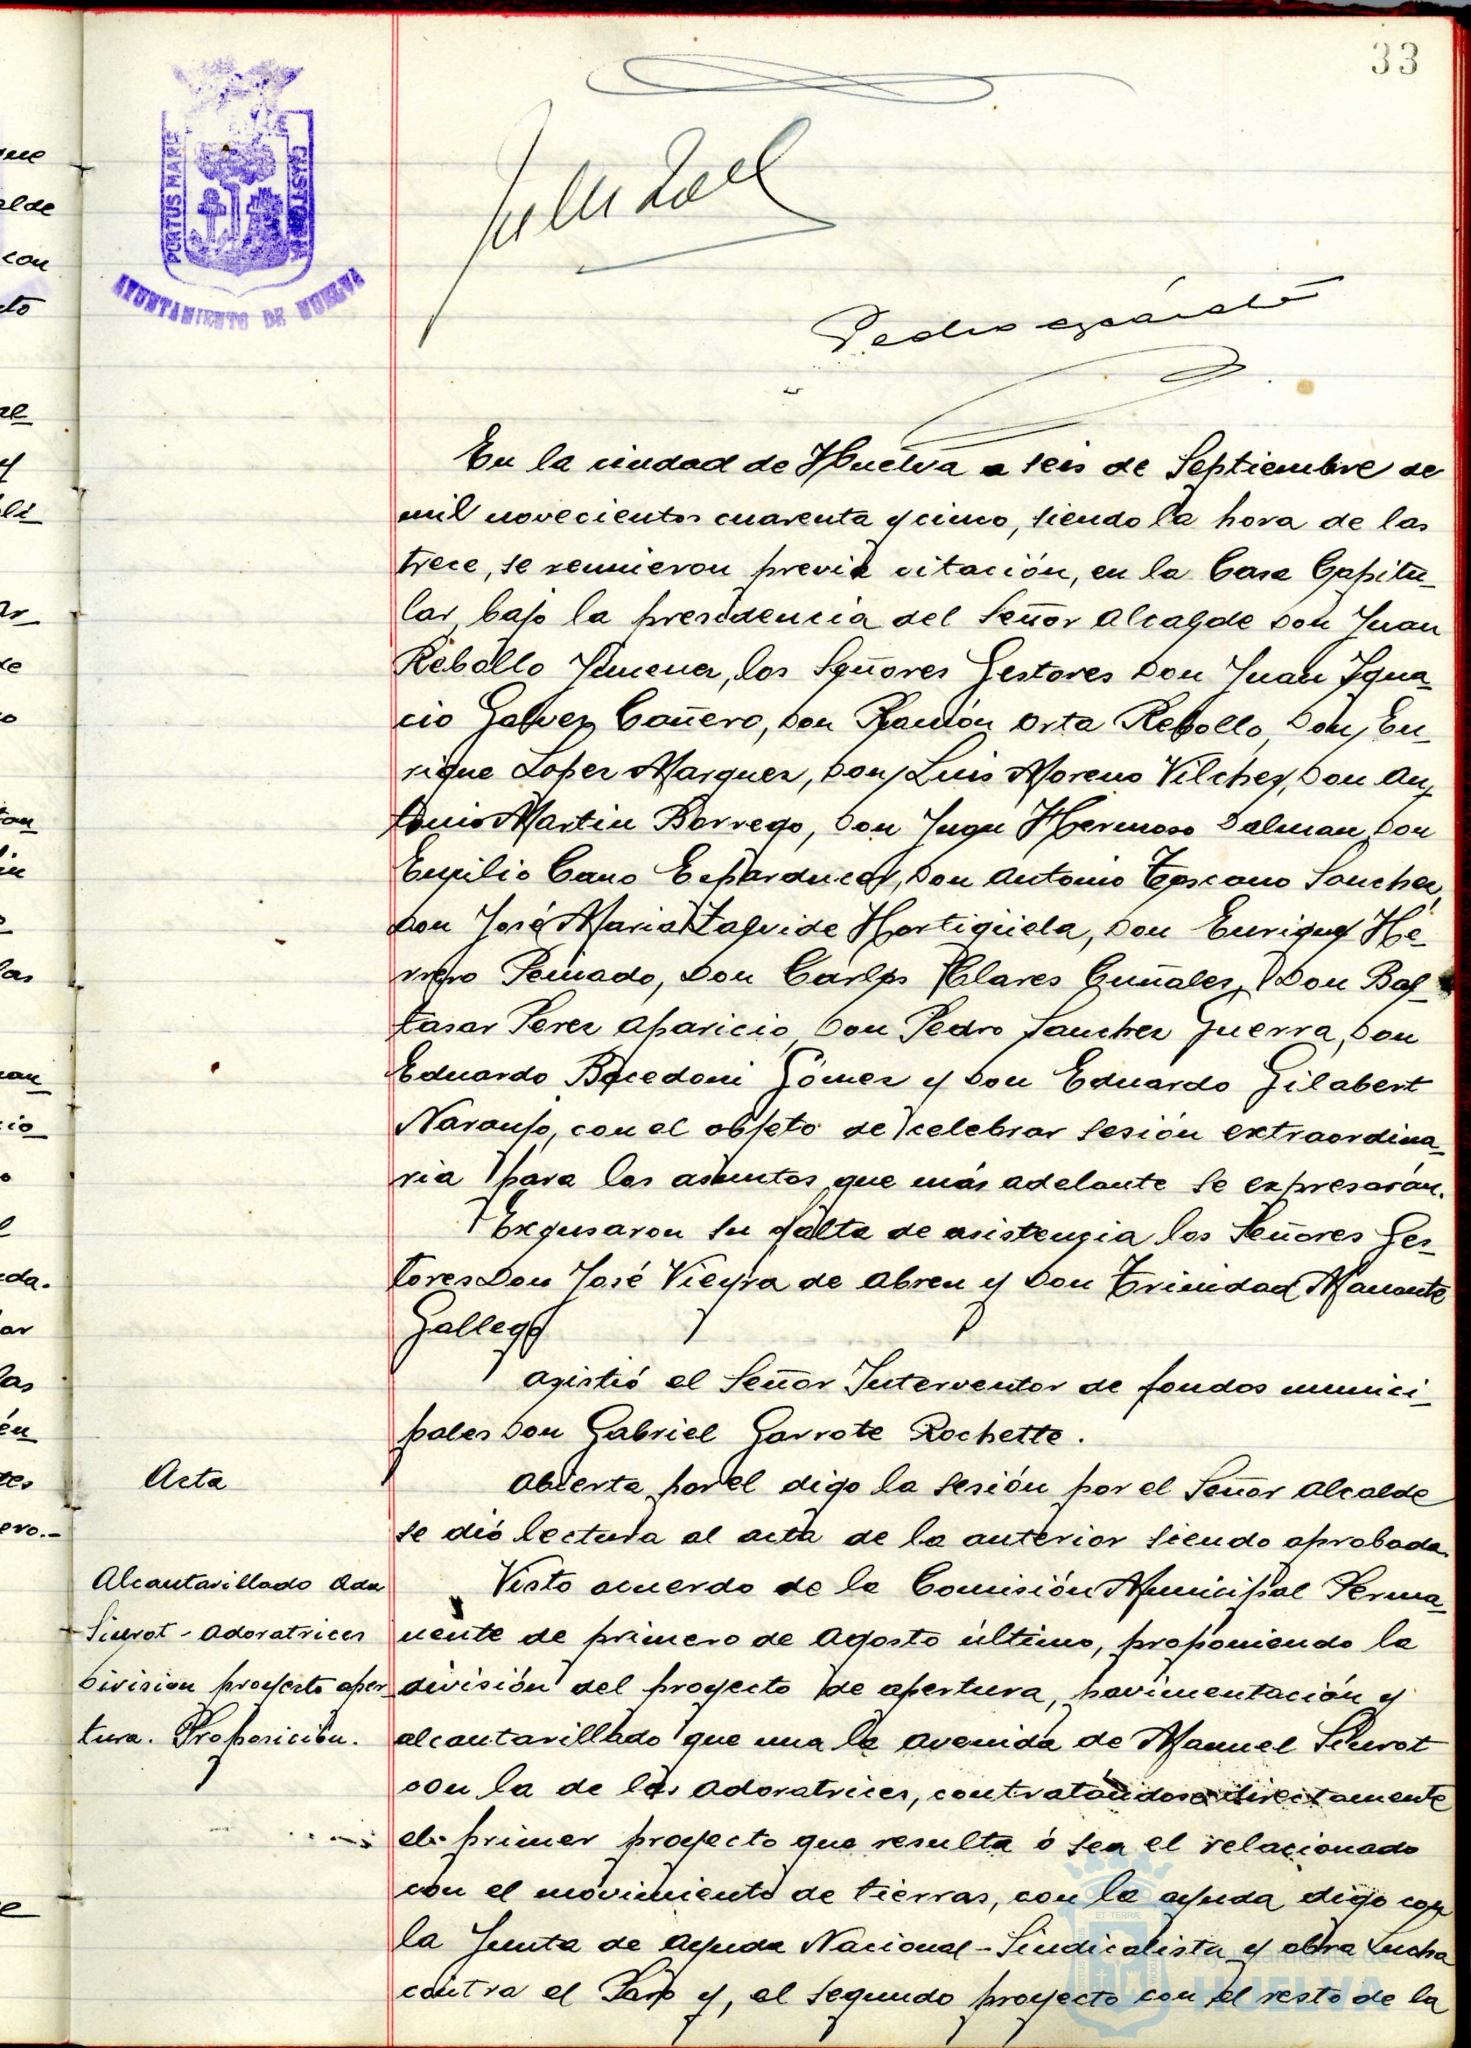 33
PORTUS MARIS
CUSTODIA
AYUNTAMIENTO DE HUELVA
En la ciudad de Huelva a seis de Septiembre de
mil novecientos cuarenta y cinco, siendo la hora de las
trece, se reunieron previa citación, en la Casa Capitu-
lar, bajo la presidencia del Señor Alcalde Don Juan
Rebollo Jimenez, los Señores Gestores Don Juan Igna-
cio Galvez Cañero, Don Ramón Orta Rebollo, Don En-
rique Lopez Marquez, Don Luis Moreno Vilchez, Don An-
tonio Martin Borrego, Don Juan Hermoso Dalman, Don
Emilio Cano Esparducer, Don Antonio Toscano Sanchez,
Don José Maria Zalvide Hortigüela, Don Enrique He-
rrero Peinado, Don Carlos Clares Cuñales, Don Bal-
tasar Perez Aparicio, Don Pedro Sanchez Guerra, Don
Eduardo Bocedoni Gómez y Don Eduardo Gilabert
Naranjo, con el objeto de celebrar sesión extraordina-
ria para los asuntos que más adelante se expresarán.
Excusaron su falta de asistencia los Señores Ges-
tores Don José Vieyra de Abreu y Don Trinidad Manante
Gallego
Asistió el Señor Interventor de fondos munici-
pales Don Gabriel Garrote Rochette.
Acta
Abierta por el digo la sesión por el Señor Alcalde
se dió lectura al acta de la anterior siendo aprobada.
Alcantarillado Ada
Siurot - Adoratrices
Division proyecto aper
tura. Proposición.
Visto acuerdo de la Comisión Municipal Perma-
nente de primero de Agosto último, proponiendo la
división del proyecto de apertura, pavimentación y
alcantarillado que una la avenida de Manuel Siurot
con la de las Adoratrices, contratándose directamente
el primer proyecto que resulta ó sea el relacionado
con el movimiento de tierras, con la ayuda digo con
la Junta de Ayuda Nacional-Sindicalista y obra Lucha
contra el Paro y, el segundo proyecto con el resto de la
Ayuntamiento de
HUELVA